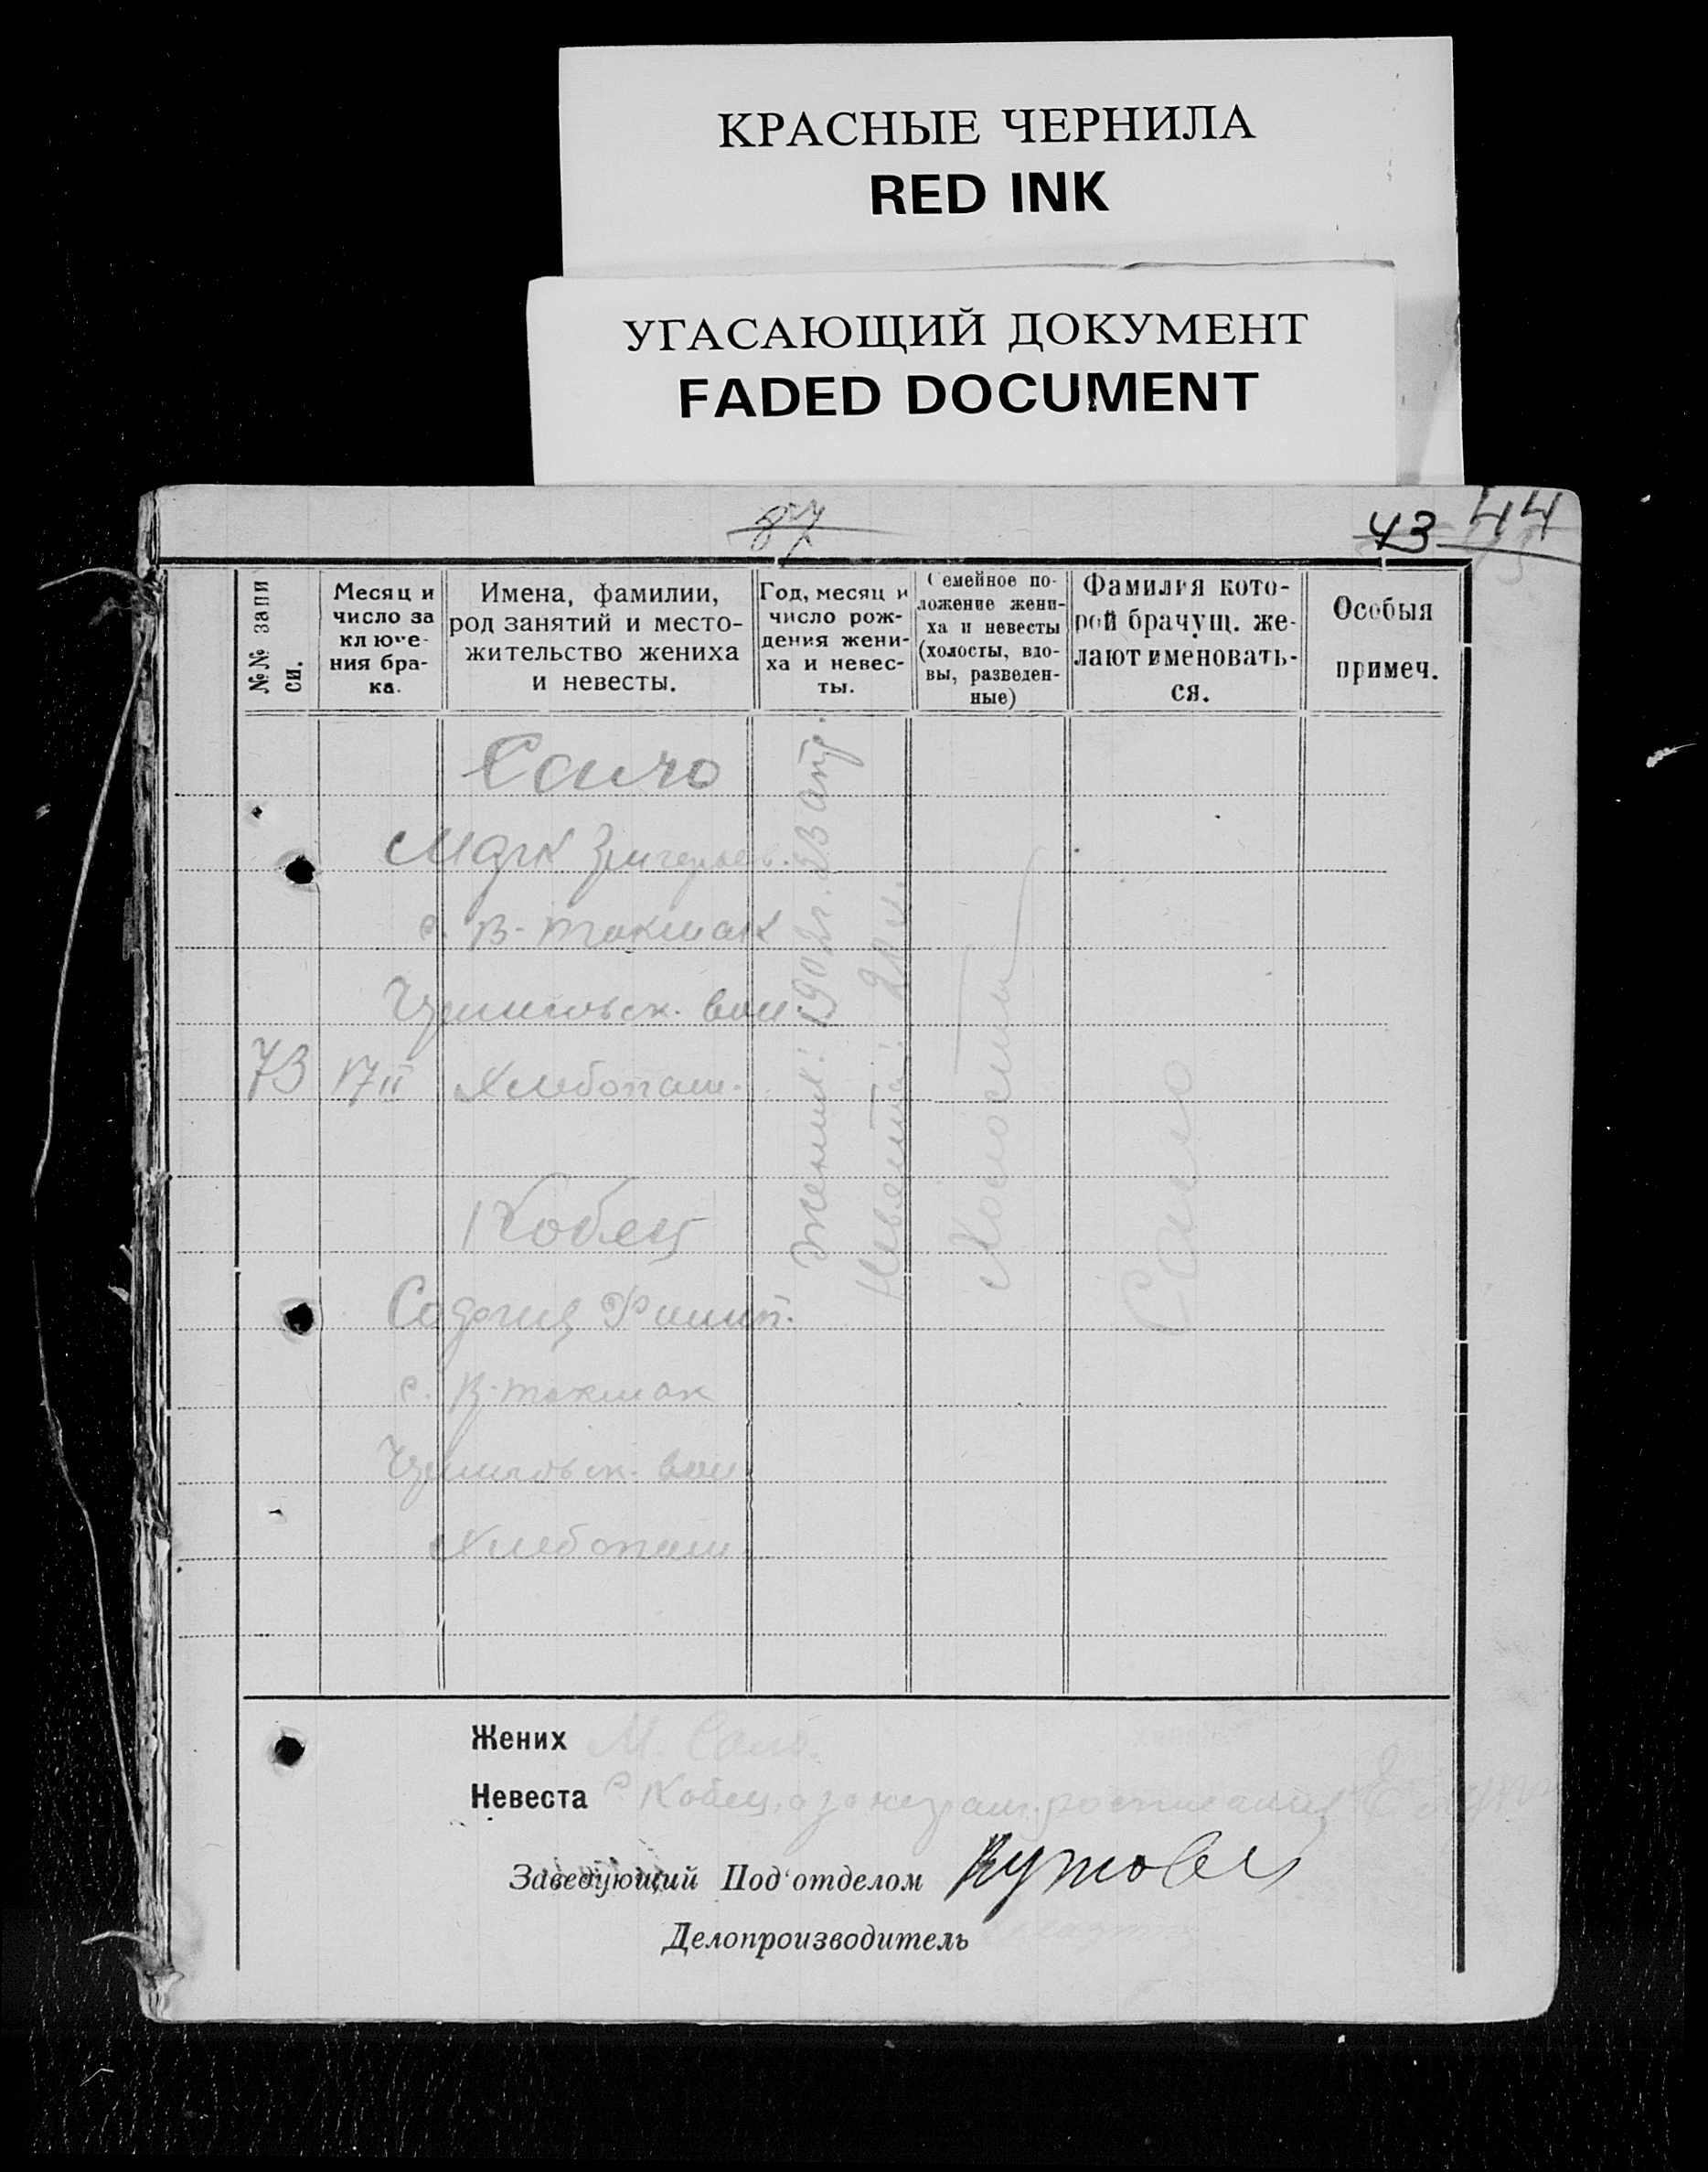 КРАСНЫЕ ЧЕРНИЛА
RED INK
УГАСАЮЩИЙ ДОКУМЕНТ
FADED DOCUMENT
87
43 44
№№ запи
си.
Месяц и
число за
ключе-
ния бра-
ка.
Имена, фамилии,
род занятий и место-
жительство жениха
и невесты.
Год, месяц и
число рож-
дения жени-
ха и невес-
ты.
Семейное по-
ложение жени-
ха и невесты
(холосты, вдо-
вы, разведен-
ные)
Фамилия кото-
рой брачущ. же-
лают именовать-
ся.
Особыя
примеч.
Сало
Марк Григорьев.
с. В-Токмак
вол.
73 17 II Хлебопаш.
Кобец
Филип.
с. В-Токмак
вол
Хлебопаш.
Жених: 1902г. 23 апр.
Невеста:
Холосты
Сало
Жених М. Сало.
Невеста Кобец, а за неграм.
Заведующий Под'отделом
Делопроизводитель